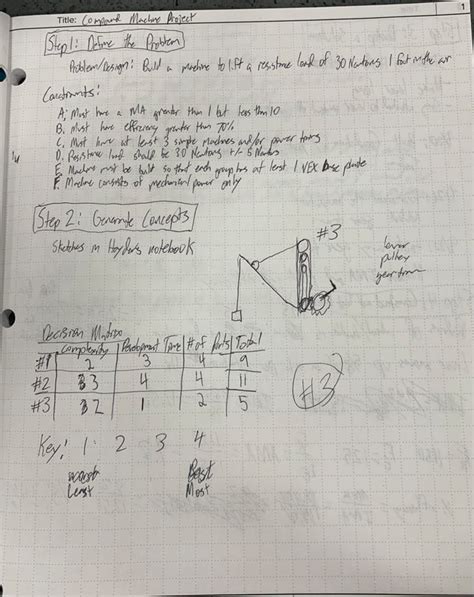 1
Title: Compound Machine Project
Step 1: Define the Problem
Problem/Design: Build a machine to lift a resistance load of 30 Newtons 1 foot in the air
Constraints:
A. Must have a MA greater than 1 but less than 10
B. Must have efficiency greater than 70%
C. Must have at least 3 simple machines and/or power trains
D. Resistance load should be 30 Newtons +/- 5 Newtons
E. Machine must be built so that each group has at least 1 VEX base plate
F. Machine consists of mechanical power only
Step 2: Generate Concepts
Sketches in notebook
#3
lever
pulley
gear train
Decision Matrix
Complexity Development Time # of Parts Total
#1 2 3 4 9
#2 3 4 4 11
#3 2 1 2 5
#3
Key: 1 2 3 4
Least Most